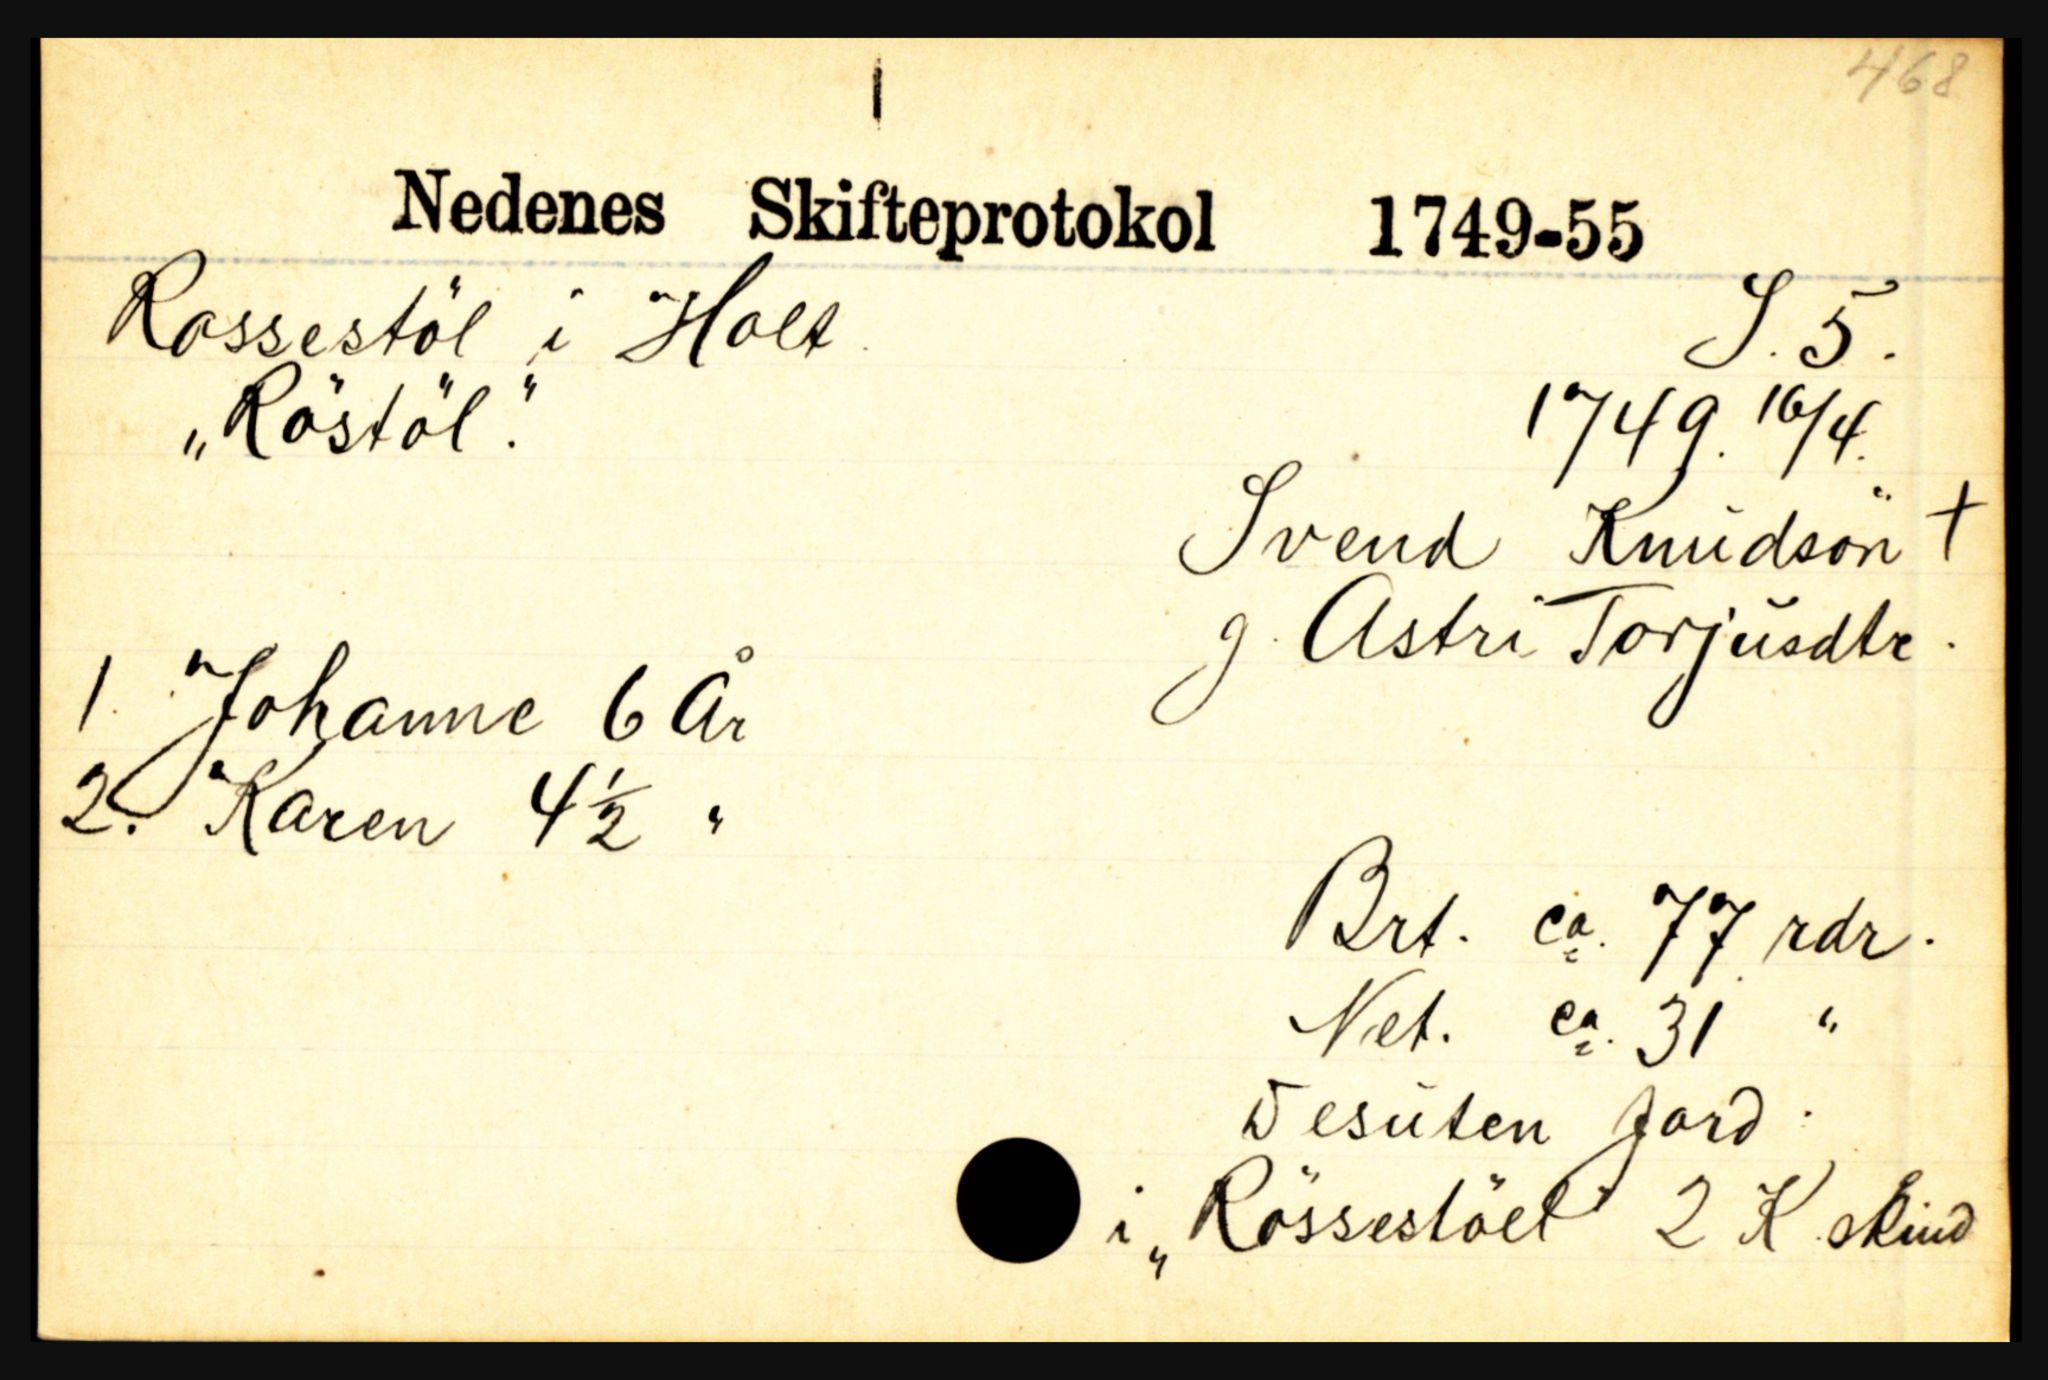 468
Nedenes Skifteprotokol 1749-55
Rossestöl i Holt. S. 5.
„Röstöl." 1749. 16/4.
Svend Knudsön †
g. Astri Torjusdtr.
1. Johanne 6 År
2. Karen 4½ "
Brt. ca. 77 rdr.
Net. ca. 31 "
Desuten Jord:
i „Rössestöel" 2 K skind